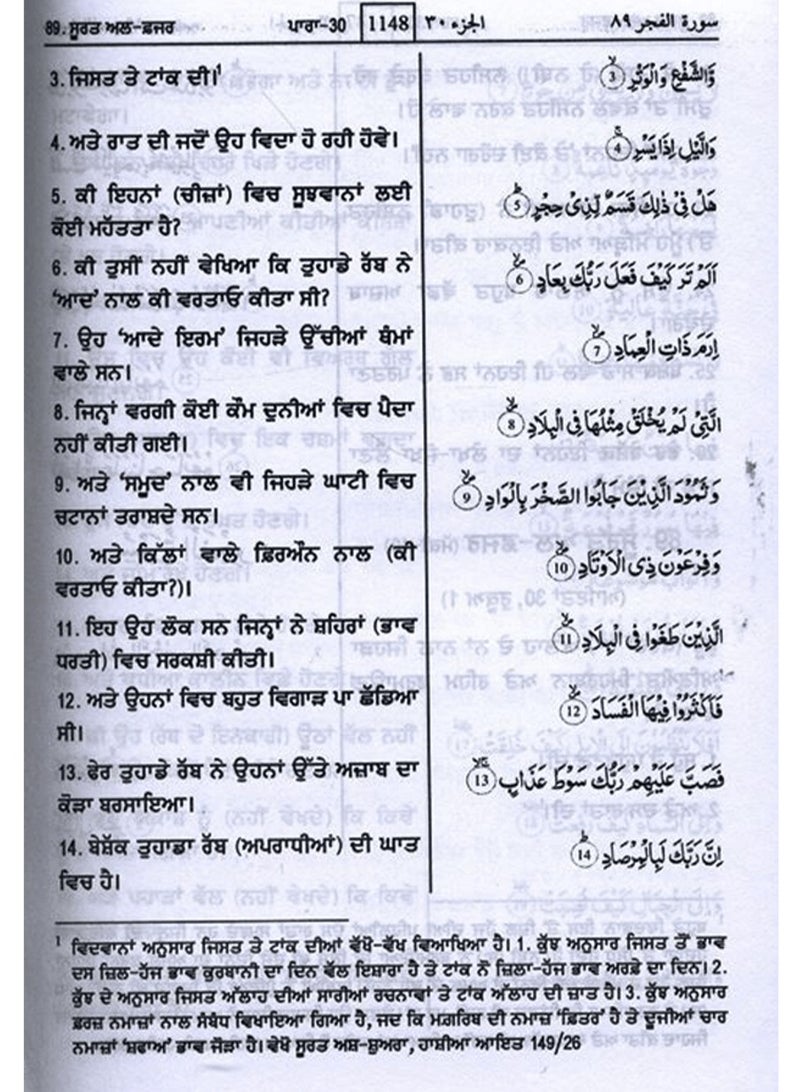 89. ਸੂਰਤ ਅਲ-ਫ਼ਜਰ ਪਾਰਾ-30 1148 الجزء ٣٠ سورة الفجر ٨٩
3. ਜਿਸਤ ਤੇ ਟਾਂਕ ਦੀ।¹
وَّالشَّفْعِ وَالْوَتْرِ ③
4. ਅਤੇ ਰਾਤ ਦੀ ਜਦੋਂ ਉਹ ਵਿਦਾ ਹੋ ਰਹੀ ਹੋਵੇ।
وَالَّيْلِ اِذَا يَسْرِ ④
5. ਕੀ ਇਹਨਾਂ (ਚੀਜ਼ਾਂ) ਵਿਚ ਸੂਝਵਾਨਾਂ ਲਈ
ਕੋਈ ਮਹੱਤਤਾ ਹੈ?
هَلْ فِيْ ذٰلِكَ قَسَمٌ لِّذِيْ حِجْرٍ ⑤
6. ਕੀ ਤੁਸੀਂ ਨਹੀਂ ਵੇਖਿਆ ਕਿ ਤੁਹਾਡੇ ਰੱਬ ਨੇ
‘ਆਦ’ ਨਾਲ ਕੀ ਵਰਤਾਓ ਕੀਤਾ ਸੀ?
اَلَمْ تَرَ كَيْفَ فَعَلَ رَبُّكَ بِعَادٍ ⑥
7. ਉਹ ‘ਆਦੇ ਇਰਮ’ ਜਿਹੜੇ ਉੱਚੀਆਂ ਥੰਮਾਂ
ਵਾਲੇ ਸਨ।
اِرَمَ ذَاتِ الْعِمَادِ ⑦
8. ਜਿਨ੍ਹਾਂ ਵਰਗੀ ਕੋਈ ਕੌਮ ਦੁਨੀਆਂ ਵਿਚ ਪੈਦਾ
ਨਹੀਂ ਕੀਤੀ ਗਈ।
الَّتِيْ لَمْ يُخْلَقْ مِثْلُهَا فِي الْبِلَادِ ⑧
9. ਅਤੇ ‘ਸਮੂਦ’ ਨਾਲ ਵੀ ਜਿਹੜੇ ਘਾਟੀ ਵਿਚ
ਚਟਾਨਾਂ ਤਰਾਸ਼ਦੇ ਸਨ।
وَثَمُوْدَ الَّذِيْنَ جَابُوا الصَّخْرَ بِالْوَادِ ⑨
10. ਅਤੇ ਕਿੱਲਾਂ ਵਾਲੇ ਫ਼ਿਰਔਨ ਨਾਲ (ਕੀ
ਵਰਤਾਓ ਕੀਤਾ?)।
وَفِرْعَوْنَ ذِي الْاَوْتَادِ ⑩
11. ਇਹ ਉਹ ਲੋਕ ਸਨ ਜਿਨ੍ਹਾਂ ਨੇ ਸ਼ਹਿਰਾਂ (ਭਾਵ
ਧਰਤੀ) ਵਿਚ ਸਰਕਸ਼ੀ ਕੀਤੀ।
الَّذِيْنَ طَغَوْا فِي الْبِلَادِ ⑪
12. ਅਤੇ ਉਹਨਾਂ ਵਿਚ ਬਹੁਤ ਵਿਗਾੜ ਪਾ ਛੱਡਿਆ
ਸੀ।
فَاَكْثَرُوْا فِيْهَا الْفَسَادَ ⑫
13. ਫੇਰ ਤੁਹਾਡੇ ਰੱਬ ਨੇ ਉਹਨਾਂ ਉੱਤੇ ਅਜ਼ਾਬ ਦਾ
ਕੋੜਾ ਬਰਸਾਇਆ।
فَصَبَّ عَلَيْهِمْ رَبُّكَ سَوْطَ عَذَابٍ ⑬
14. ਬੇਸ਼ੱਕ ਤੁਹਾਡਾ ਰੱਬ (ਅਪਰਾਧੀਆਂ) ਦੀ ਘਾਤ
ਵਿਚ ਹੈ।
اِنَّ رَبَّكَ لَبِالْمِرْصَادِ ⑭
¹ ਵਿਦਵਾਨਾਂ ਅਨੁਸਾਰ ਜਿਸਤ ਤੇ ਟਾਂਕ ਦੀਆਂ ਵੱਖੋ-ਵੱਖ ਵਿਆਖਿਆ ਹੈ। 1. ਕੁੱਝ ਅਨੁਸਾਰ ਜਿਸਤ ਤੋਂ ਭਾਵ
ਦਸ ਜ਼ਿਲ-ਹੱਜ ਭਾਵ ਕੁਰਬਾਨੀ ਦਾ ਦਿਨ ਵੱਲ ਇਸ਼ਾਰਾ ਹੈ ਤੇ ਟਾਂਕ ਨੌਂ ਜ਼ਿਲਾ-ਹੱਜ ਭਾਵ ਅਰਫ਼ੇ ਦਾ ਦਿਨ। 2.
ਕੁੱਝ ਦੇ ਅਨੁਸਾਰ ਜਿਸਤ ਅੱਲਾਹ ਦੀਆਂ ਸਾਰੀਆਂ ਰਚਨਾਵਾਂ ਤੇ ਟਾਂਕ ਅੱਲਾਹ ਦੀ ਜ਼ਾਤ ਹੈ। 3. ਕੁੱਝ ਅਨੁਸਾਰ
ਫ਼ਰਜ਼ ਨਮਾਜ਼ਾਂ ਨਾਲ ਸੰਬੰਧ ਵਿਖਾਇਆ ਗਿਆ ਹੈ, ਜਦ ਕਿ ਮਗ਼ਰਿਬ ਦੀ ਨਮਾਜ਼ ‘ਫ਼ਿਤਰ’ ਹੈ ਤੇ ਦੂਜੀਆਂ ਚਾਰ
ਨਮਾਜ਼ਾਂ ‘ਸ਼ਫਾਅ’ ਭਾਵ ਜੋੜਾ ਹੈ। ਵੇਖੋ ਸੂਰਤ ਅਸ਼-ਸ਼ੁਅਰਾ, ਹਾਸ਼ੀਆ ਆਇਤ 149/26